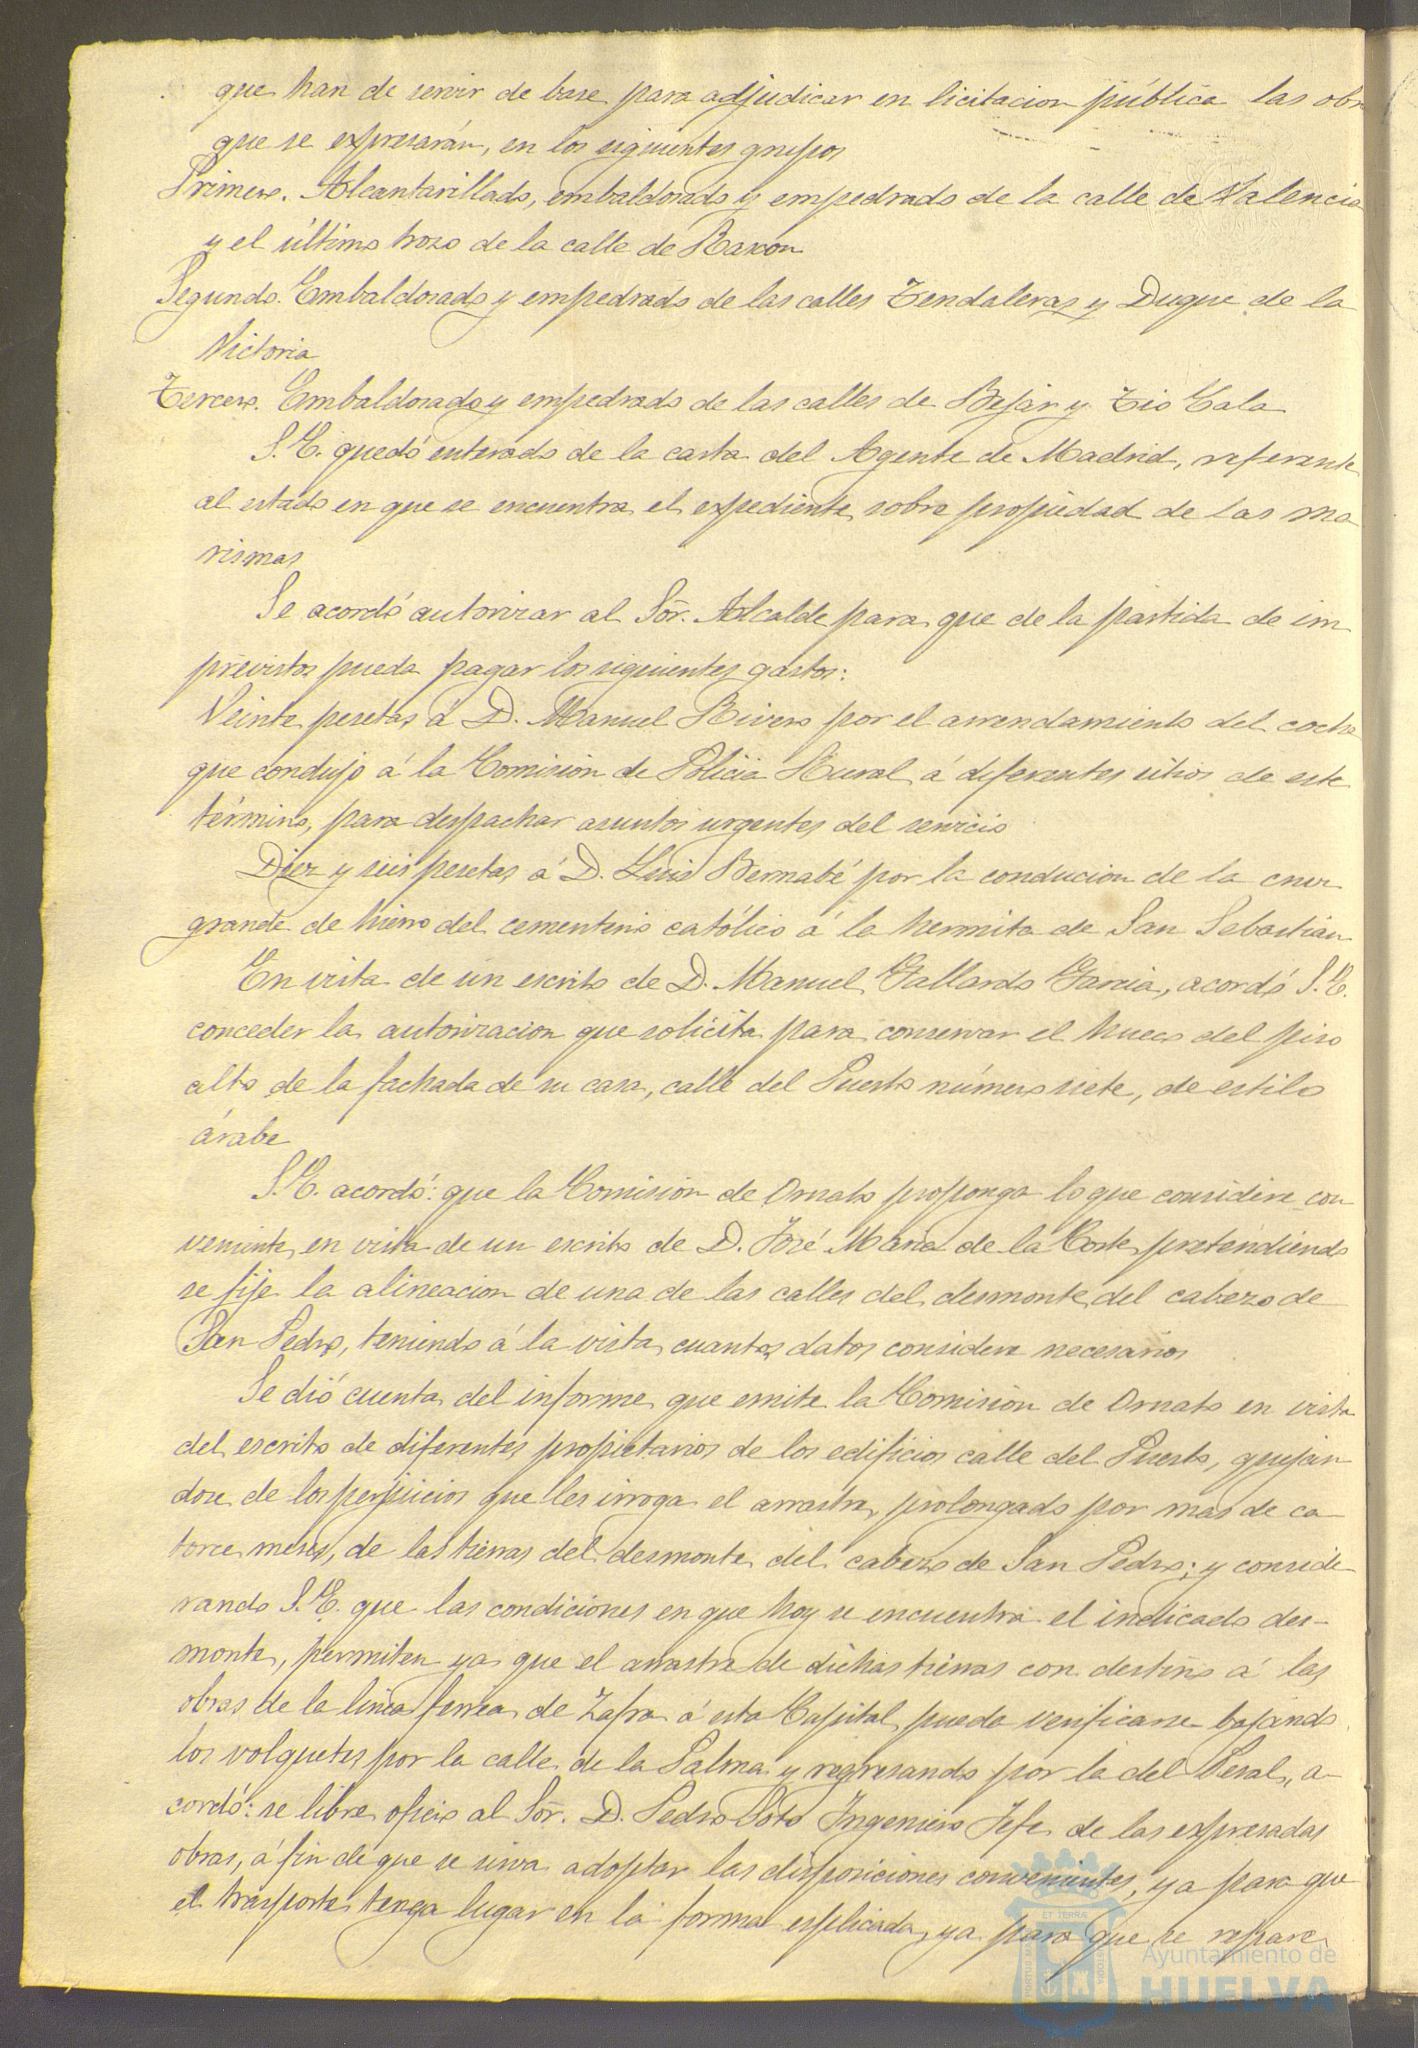 que han de servir de base para adjudicar en licitacion pública las obr
que se expresarán, en los siguientes grupos
Primero. Alcantarillado, embaldosado y empedrado de la calle de Valencia
y el último trozo de la calle de Rascon
Segundo. Embaldosado y empedrado de las calles Tendaleras y Duque de la
Victoria
Tercero. Embaldosado y empedrado de las calles de Bejar y Tio Cala
S.E. quedó enterado de la carta del Agente de Madrid, referente
al estado en que se encuentra el expediente sobre propiedad de las ma
rismas
Se acordó autorizar al Sõr. Alcalde para que de la partida de im
previstos pueda pagar los siguientes gastos:
Veinte pesetas á D. Manuel Rivero por el arrendamiento del coche
que condujo á la Comision de Policia Rural á diferentes sitios de este
término, para despachar asuntos urgentes del servicio
Diez y seis pesetas á D. Luis Bernabé por la conducion de la cruz
grande de hierro del cementerio católico á la hermita de San Sebastián
En vista de un escrito de D. Manuel Gallardo Garcia, acordó S.E.
conceder la autorizacion que solicita para conservar el hueco del piso
alto de la fachada de su casa, calle del Puerto número siete, de estilo
árabe
S.E. acordó: que la Comision de Ornato proponga lo que considere con
veniente en vista de un escrito de D. José Maria de la Corte pretendiendo
se fije la alineacion de una de las calles del desmonte del cabezo de
San Pedro, teniendo á la vista cuantos datos considere necesarios
Se dió cuenta del informe que emite la Comision de Ornato en vista
del escrito de diferentes propietarios de los edificios calle del Puerto, quejan
dose de los perjuicios que les irroga el arrastre prolongado por mas de ca-
torce meses, de las tierras del desmonte del cabezo de San Pedro; y conside
rando S.E. que las condiciones en que hoy se encuentra el indicado des-
monte, permiten ya que el arrastre de dichas tierras con destino á las
obras de la linea ferrea de Zafra á esta Capital pueda verificarse bajando
los volquetes por la calle de la Palma y regresando por la del Peral, a-
cordó: se libre oficio al Sõr. D. Pedro Soto Ingeniero Jefe de las expresadas
obras, á fin de que se sirva adoptar las disposiciones convenientes, ya para que
el trasporte tenga lugar en la forma esplicada, ya para que se repare
Ayuntamiento de
HUELVA